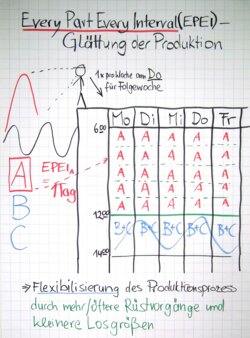 Every Part Every Interval (EPEI) –
Glättung der Produktion
1x pro Woche am Do
für Folgewoche
Mo Di Mi Do Fr
6:00
A A A A A
A A A A A
A EPEI_A A A A A A
= 1Tag
A A A A A
B
A A A A A
12:00
C B+C B+C B+C B+C B+C
14:00
→ Flexibilisierung des Produktionsprozess
durch mehr/öftere Rüstvorgänge und
kleinere Losgrößen